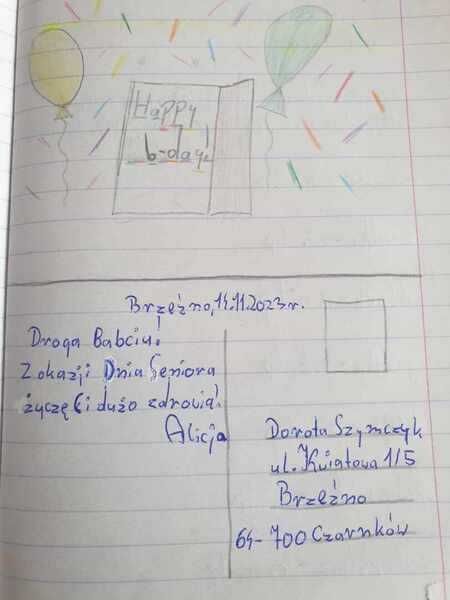 Happy
b-day!
Brzeźno, 14.11.2023 r.
Droga Babciu!
Z okazji Dnia Seniora
życzę Ci dużo zdrowia!
Alicja
Dorota Szymczyk
ul. Kwiatowa 1/5
Brzeźno
64-700 Czarnków